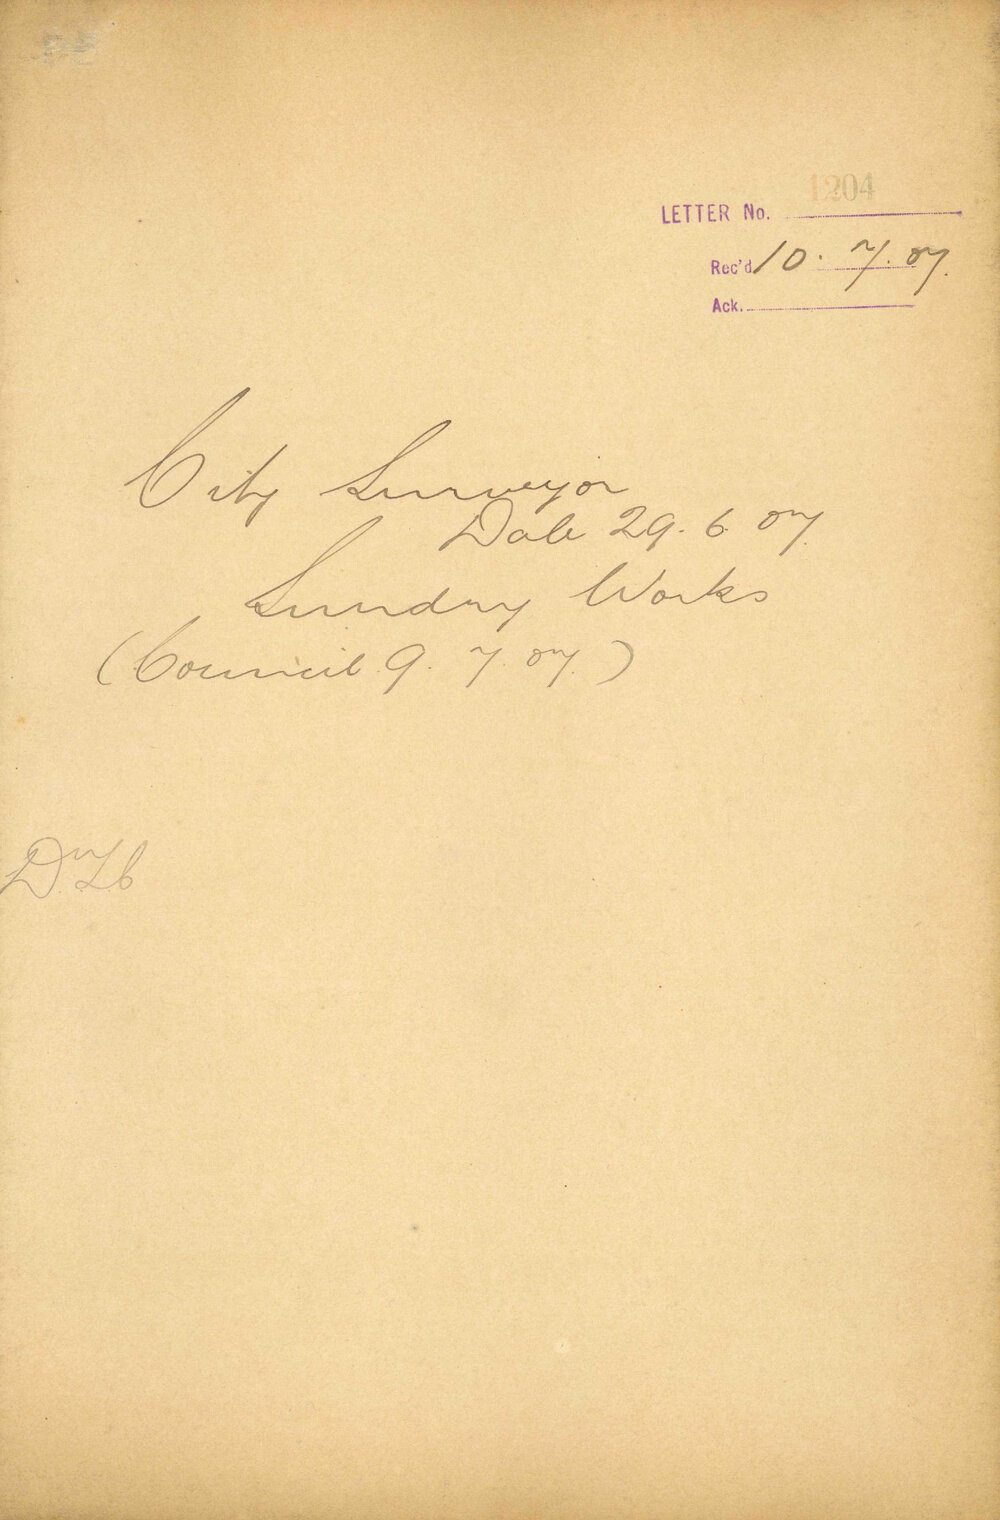 1204
LETTER No.
Rec'd 10. 7. 07.
Ack.
City Surveyor
Date 29. 6. 07.
Sundry Works
(Council 9. 7. 07.)